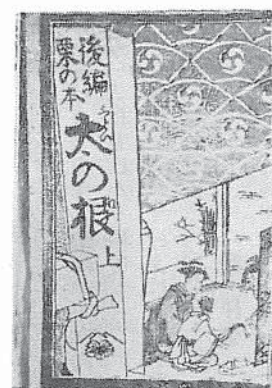 後編
栗の本
太の根
上